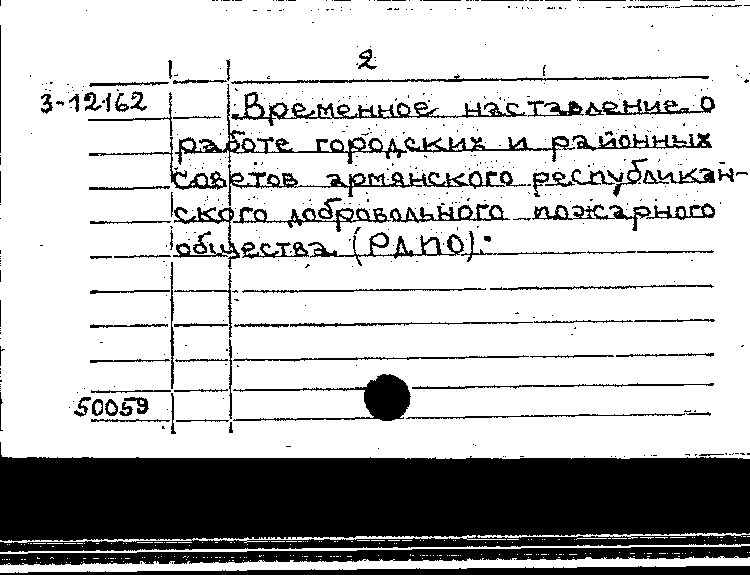 2
3-12162 Временное наставление о
работе городских и районных
советов армянского республикан-
ского добровольного пожарного
общества (РДПО).
50059